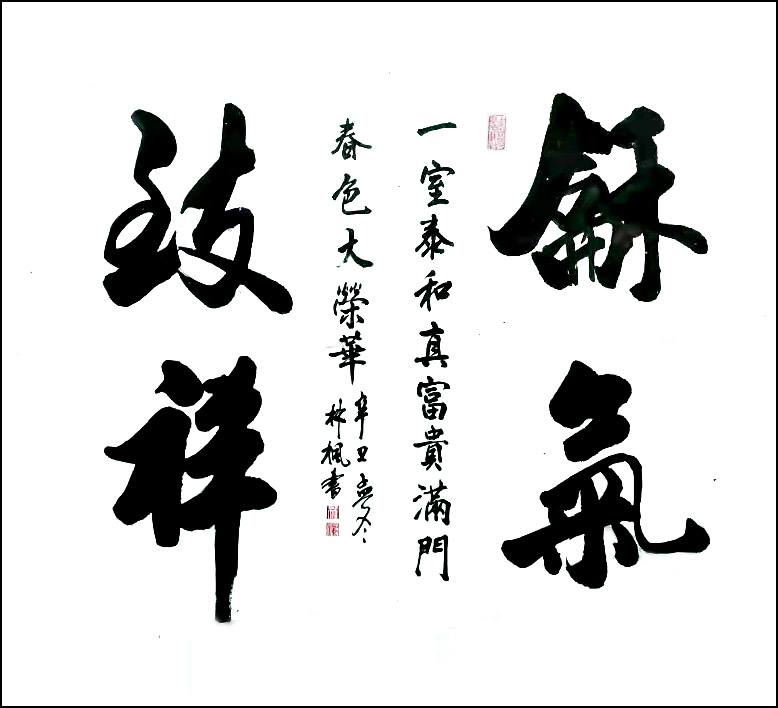 龢氣
一室泰和真富貴滿門
春色大榮華
辛丑孟冬
林楓書
致祥